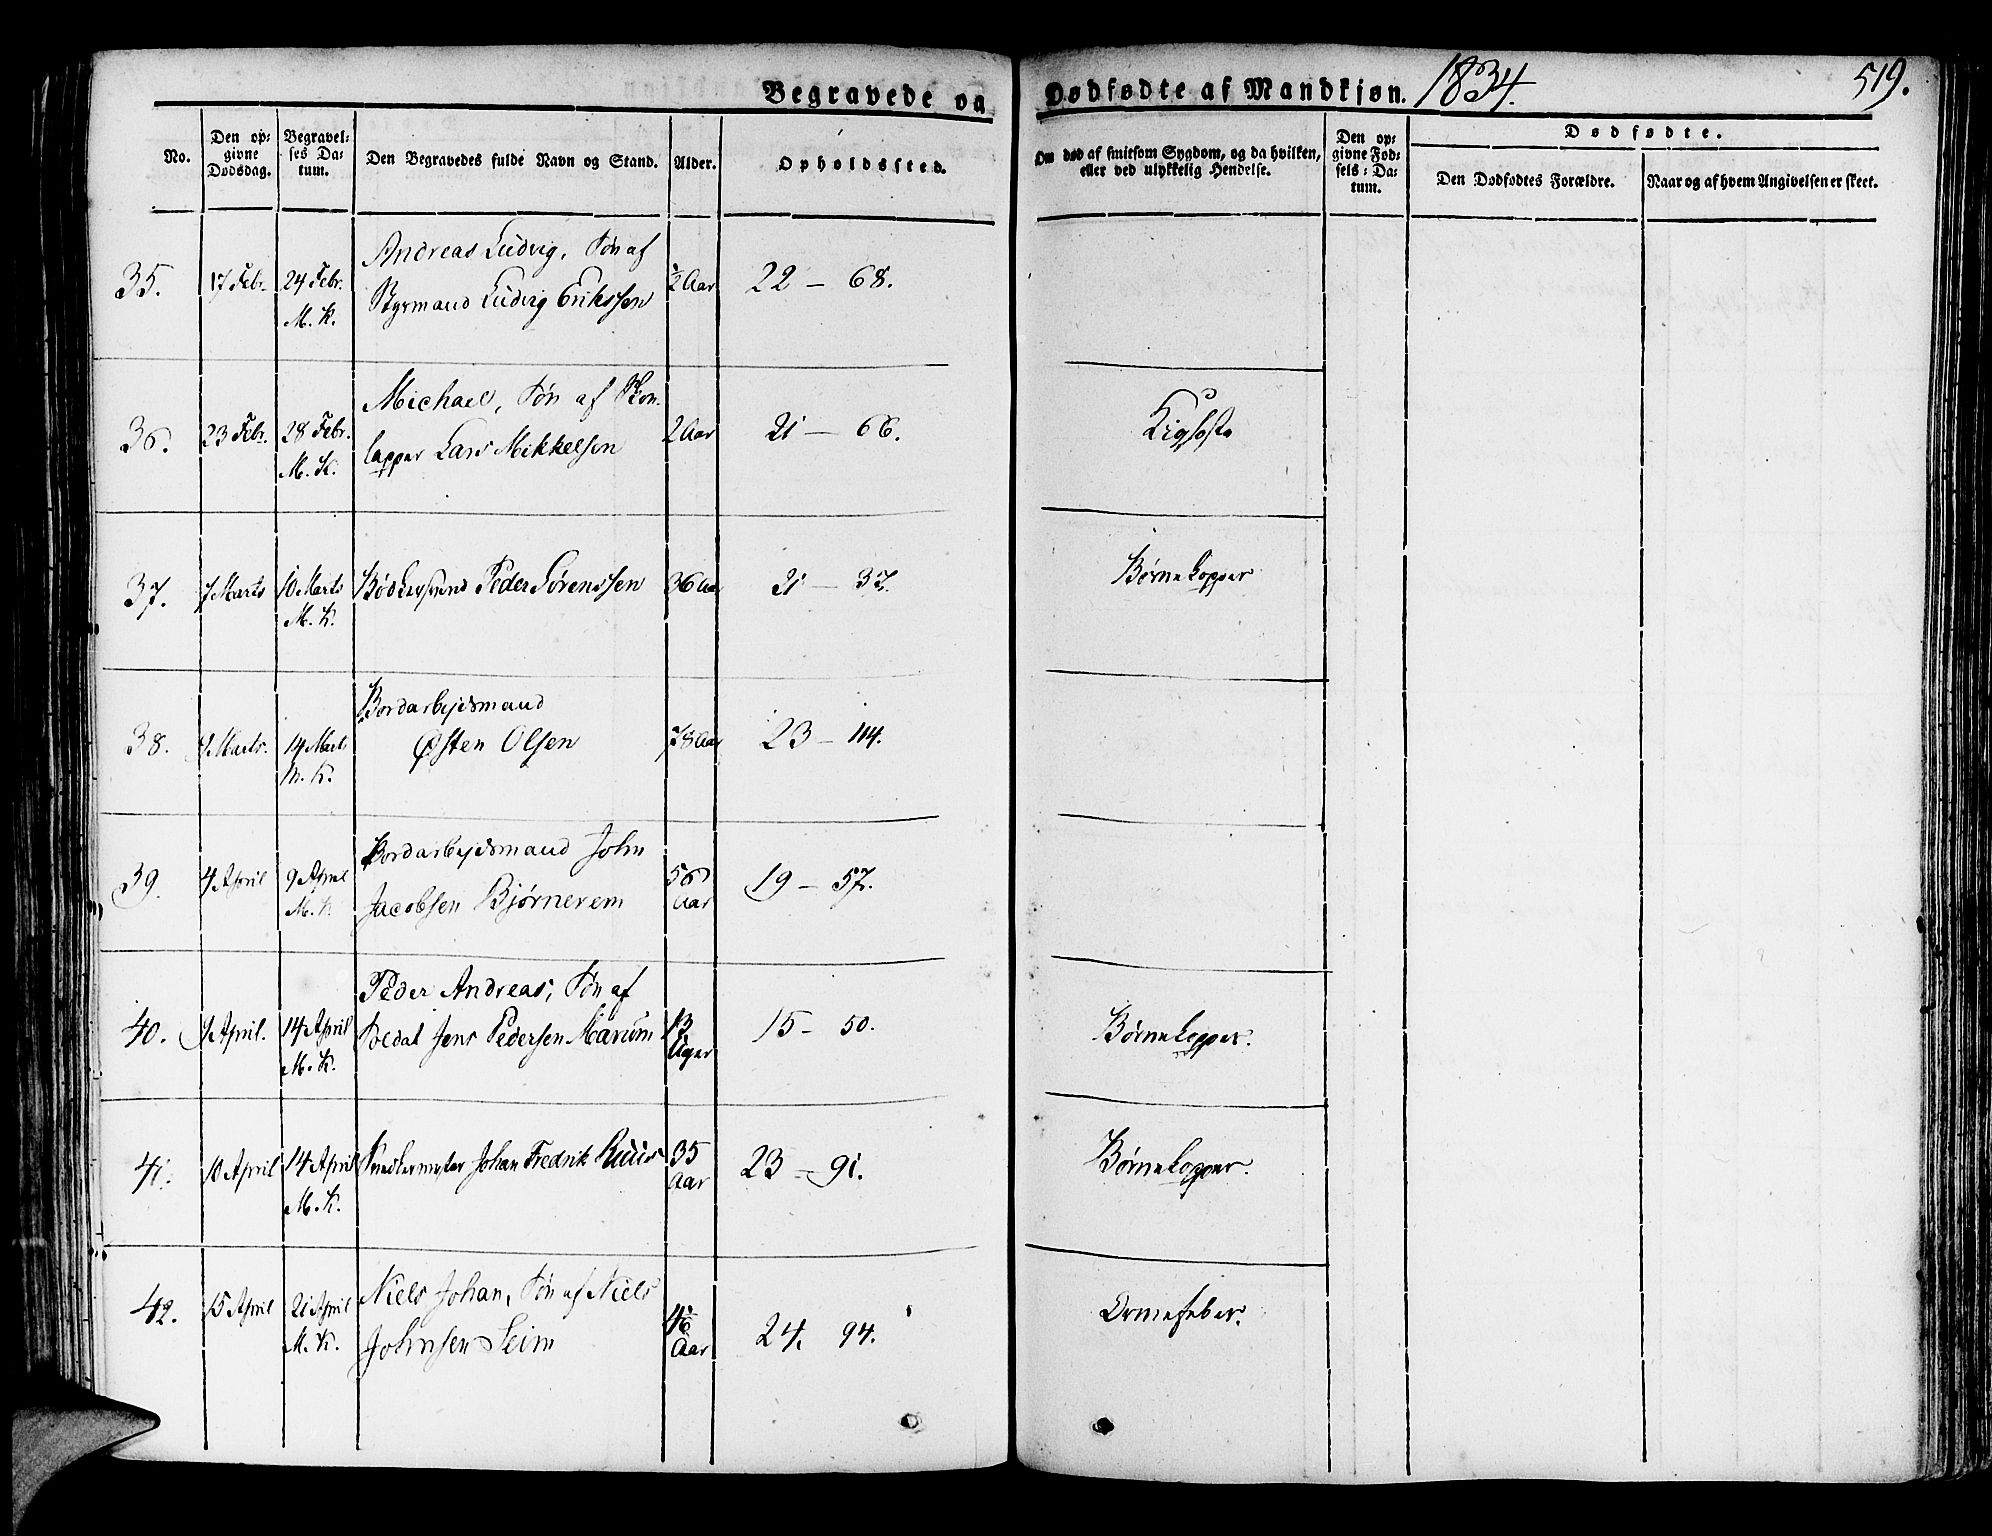 Begravede og Dødfødte af Mandkjøn. 1834. 519.
No. | Den opgivne Dødsdag. | Begravelses Datum. | Den Begravedes fulde Navn og Stand. | Alder. | Opholdssted. | Om død af smitsom Sygdom, og da hvilken, eller ved ulykkelig Hendelse. | Den opgivne Fødsels-Datum. | Dødfødte. | Den Dødfødtes Forældre. | Naar og af hvem Angivelsen er skeet.
Andreas Ludvig, Søn af
35. 17 Febr. 24 Febr. M. K. Styrmand Ludvig Erikssen ½ Aar 22 — 68.
Michael, Søn af
36. 23 Febr. 28 Febr. M. K. Lars Mikkelsen 2 Aar 21 — 66. Kighoste
37. 7 Marts 10 Marts M. K. Bødkersvend Peder Sørenssen 36 Aar 21 — 37. Børnekopper
Bordarbejdsmand
38. Marts. 14 Marts M. K. Østen Olsen 78 Aar 23 — 114.
Bordarbejdsmand John
39. 4 April 9 April M. K. Jacobsen Bjørnerem 56 Aar 19 — 57.
Peder Andreas, Søn af
40. April. 14 April M. K. Soldat Jens Pedersen Marum 13 Uger 15 — 50. Børnekopper.
41. 10 April 14 April M. K. Snedkermester Johan Fredrik 35 Aar 23 — 91. Børnekopper.
Niels Johan, Søn af Niels
42. 15 April 21 April M. K. Johnsen Seim Aar 24. 94. Ormefeber.